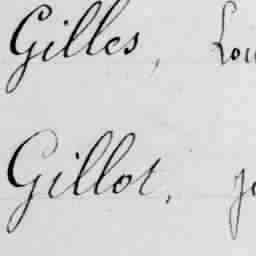 Gilles, Lou
Gillot, je